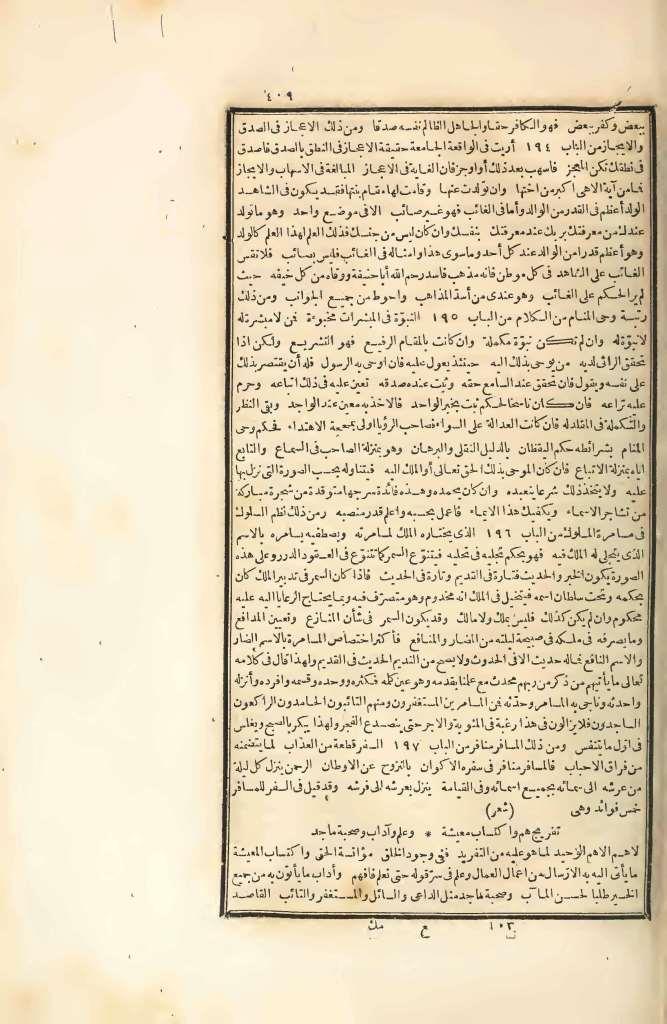 ٤٠٩
ببعض وكفر ببعض فهو الكافر حقا والجاهل الظالم نفسه صدقا ومن ذلك الاعجاز فى الصدق
والايجاز من الباب ١٩٤ أوتيت فى الواقعة الجامعة حقيقة الاعجاز فى النطق بالصدق فاصدق
فى نطقك تكن المعجز فاسهب بعد ذلك أو اوجز فان الغاية فى الاعجاز المبالغة فى الاسهاب والايجاز
فما من آية الا هى اكبر من اختها وان تولدت عنها وقامت لها مقام بنتها فقد يكون فى الشاهد
الولد أعظم فى القدر من الوالد وأما فى الغائب فهو غير صائب الا فى موضع واحد وهو ما تولد
عندك من معرفتك بربك عند معرفتك بنفسك وان كان ليس من جنسك فذلك العلم لهذا العلم كالولد
وهو أعظم قدرا من الوالد عند كل أحد وما سوى هذا وامثاله فى الغائب فليس بصائب فلا تقس
الغائب على الشاهد فى كل موطن فانه مذهب فاسد رحم الله أبا حنيفة ووقاه من كل خيفه حيث
لم ير الحكم على الغائب وهو عندى من أسد المذاهب واحوط من جميع الجوانب ومن ذلك
رتبة وحى المنام من الكلام من الباب ١٩٥ النبوّة فى المبشرات مخبوءة فمن لا مبشرة له
لا نبوّة له وان لم تكن نبوّة مكملة وان كانت بالمقام الرفيع فهو التشريع ولكن اذا
تحقق الرائى لديه من يوحى بذلك اليه حينئذ يعول عليه فان اوحى به الرسول فله أن يقتصر بذلك
على نفسه ويقول فان تحقق عند السامع حقه وثبت عنده صدقه تعين عليه فى ذلك اتباعه وحرم
عليه نزاعه فان كان ناسخا لحكم ثبت بخبر الواحد فالاخذ به معين عند الواجد وبقى النظر
والتكملة فى المقلد له فان كانت العدالة على السواء فصاحب الرؤيا اولى بمحجة الاهتداء فحكم وحى
المنام بشرائطه حكم اليقظان بالدليل النقلى والبرهان وهو بمنزلة الصاحب فى السماع والتابع
اياه بمنزلة الاتباع فان كان الموحى بذلك الحق تعالى أو الملك اليه فيتناوله بحسب الصورة التى نزل بها
عليه ولا يتخذ ذلك شرعا يتعبده وان كان يحمده وهذه فائدة سرجها متوقدة من شجرة مباركة
من تشاجر الاسماء ويكفيك هذا الايماء فاعمل بحسبه واعلم قدر منصبه ومن ذلك نظم السلوك
فى مسامرة الملوك من الباب ١٩٦ الذى يختاره الملك لمسامرته ويصطفيه يسامره بالاسم
الذى يتجلى له الملك فيه فهو بحكم تجليه فى تحليه فيتنوّع السمر كما تتنوّع فى العقود الدرر وعلى هذه
الصورة يكون الخبر والحديث فتارة فى القديم وتارة فى الحديث فاذا كان السمر فى تدبير الملك كان
بحكمه وتحت سلطان اسمه فيتخيل فى الملك انه مخدوم وهو متصرّف فيه وبما يحتاج الرعايا اليه عليه
محكوم وان لم يكن كذلك فليس بملك ولا مالك وقد يكون السمر فى شأن المنازع وتعيين المدافع
وما يصرفه فى ملكه فى صبيحة ليلته من المضار والمنافع فأكثر اختصاص المسامرة بالاسم الضار
والاسم النافع فماله حديث الا فى الحدوث ولا يصح من النديم الحديث فى القديم ولهذا قال فى كلامه
تعالى ما يأتيهم من ذكر من ربهم محدث مع علمنا بقدمه وهو عين كلمه فكثره ووحده وقسمه وافرده وأنزله
واحدثه وناجى به المسامر وحدّثه فمن المسامرين المستغفرون ومنهم التائبون الحامدون الراكعون
الساجدون فلا يزالون فى هذا رغبة فى المثوبة والاجر حتى ينصدع الفجر ولهذا يبكر بالصبح ويغلس
فى اول ما يتنفس ومن ذلك المسافر منافر من الباب ١٩٧ السفر قطعة من العذاب لما يتضمنه
من فراق الاحباب فالمسافر منافر فى سفره الاكوان بالنزوح عن الاوطان الرحمن ينزل كل ليلة
من عرشه الى سمائه بجميع اسمائه وفى القيامة ينزل بعرشه الى فرشه وقد قيل فى السفر للمسافر
خمس فوائد وهى (شعر)
تفريج هم واكتساب معيشة * وعلم وآداب وصحبة ماجد
لاهم الاهم الوحيد لما هو عليه من التفريد ففى وجود الخلق مؤانسة الحق واكتساب المعيشة
ما يأتى اليه به الارسال من اعمال العمال وعلم فى سرّ قوله حتى نعلم فافهم وآداب ما يأتون به من جميع
الخير طلبا لحسن المآب وصحبة ماجد مثل الداعى والسائل والمستغفر والتائب القاصد
١٠٣ ع مك